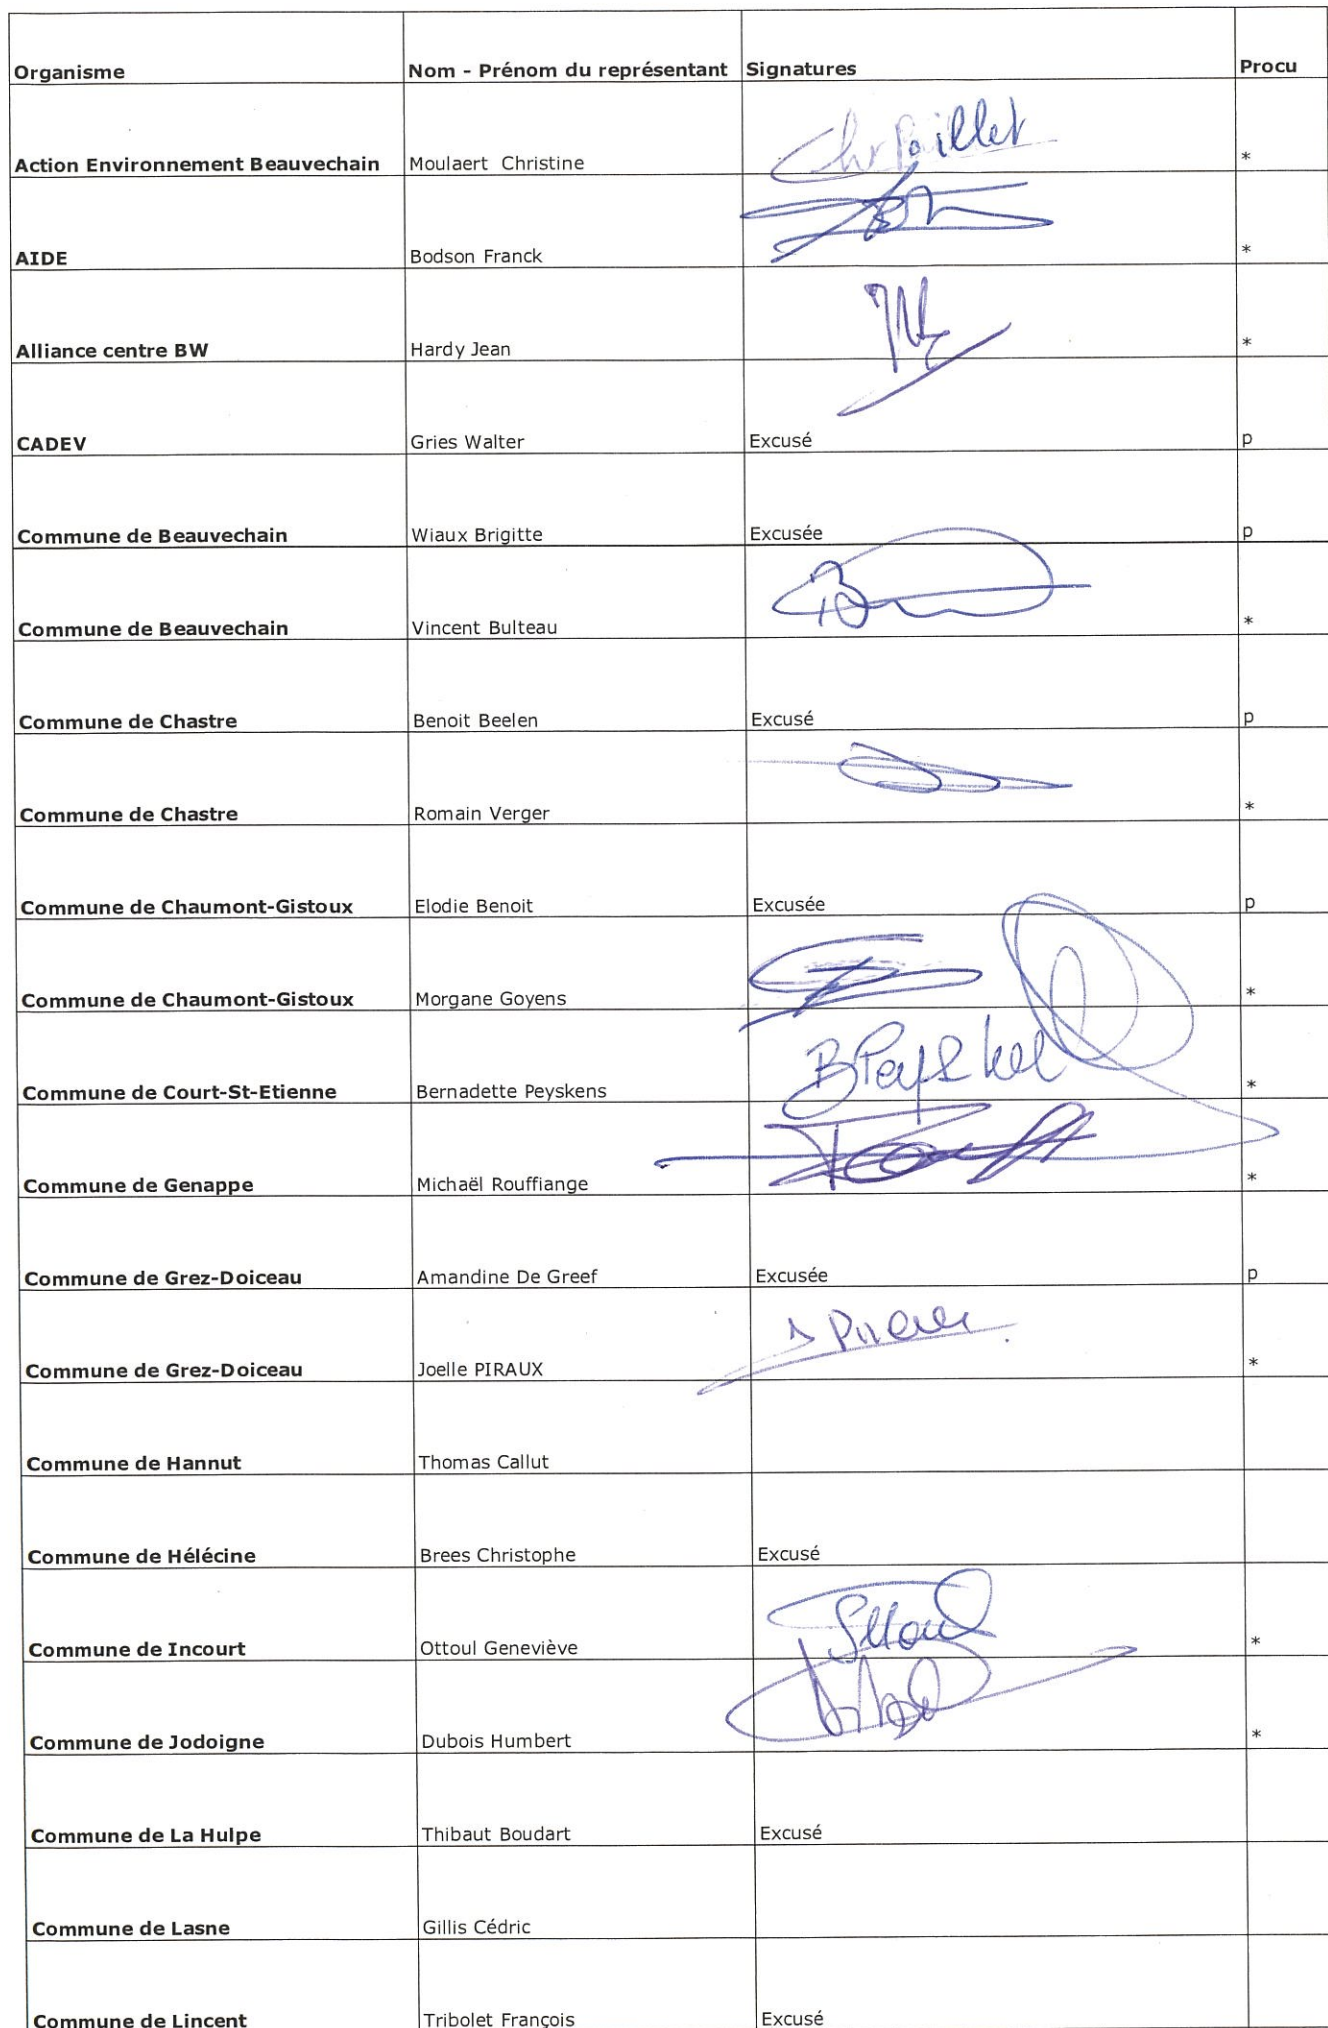 Organisme Nom - Prénom du représentant Signatures Procu
Action Environnement Beauvechain Moulaert Christine Chr Paillet *
AIDE Bodson Franck *
Alliance centre BW Hardy Jean *
CADEV Gries Walter Excusé p
Commune de Beauvechain Wiaux Brigitte Excusée p
Commune de Beauvechain Vincent Bulteau *
Commune de Chastre Benoit Beelen Excusé p
Commune de Chastre Romain Verger *
Commune de Chaumont-Gistoux Elodie Benoit Excusée p
Commune de Chaumont-Gistoux Morgane Goyens *
Commune de Court-St-Etienne Bernadette Peyskens *
Commune de Genappe Michaël Rouffiange *
Commune de Grez-Doiceau Amandine De Greef Excusée p
Commune de Grez-Doiceau Joelle PIRAUX *
Commune de Hannut Thomas Callut
Commune de Hélécine Brees Christophe Excusé
Commune de Incourt Ottoul Geneviève *
Commune de Jodoigne Dubois Humbert *
Commune de La Hulpe Thibaut Boudart Excusé
Commune de Lasne Gillis Cédric
Commune de Lincent Tribolet François Excusé